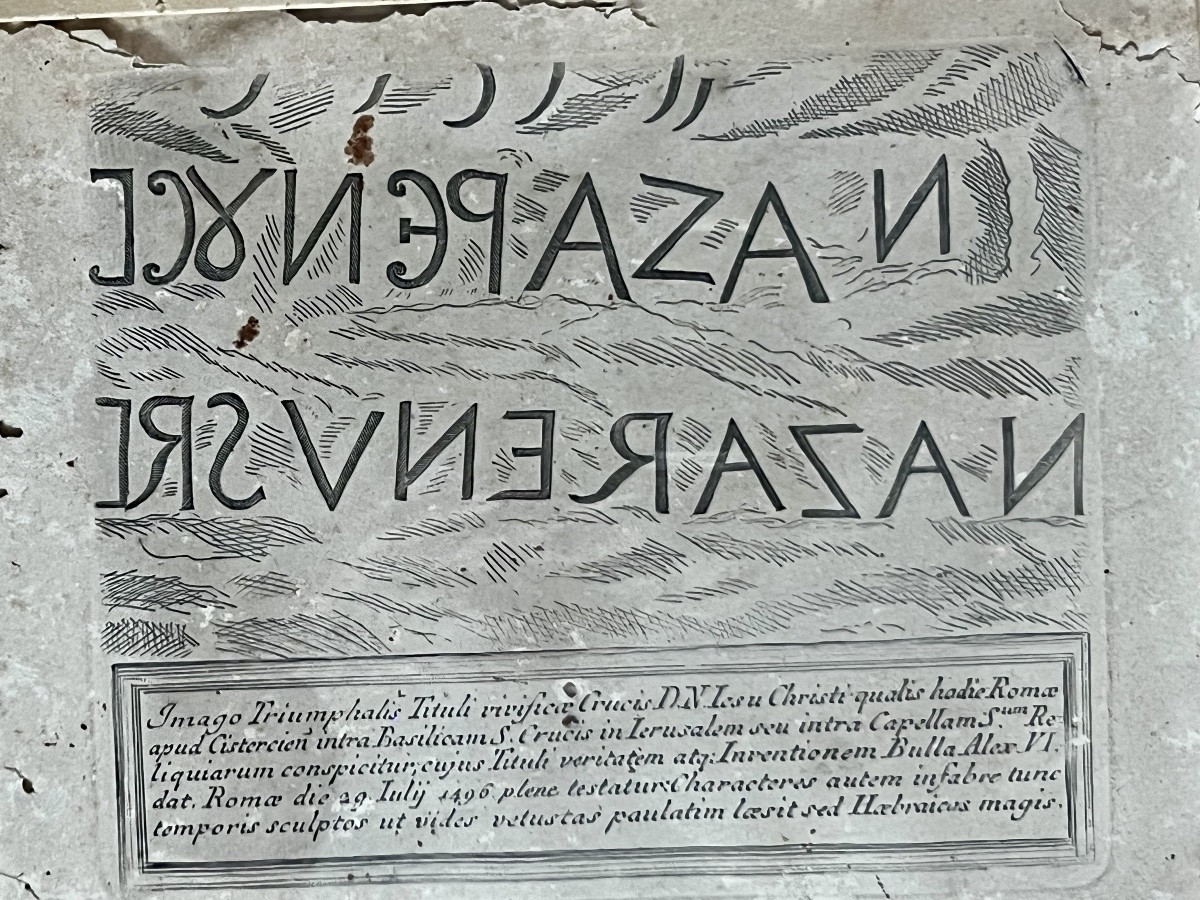 NAZAPЄNȢC
NAZARENVS R
Imago Triumphalis Tituli vivificæ Crucis D.N. Iesu Christi qualis hodie Romæ
apud Cistercien̄ intra Basilicam S. Crucis in Ierusalem seu intra Capellam S.um Re=
liquiarum conspicitur, cujus Tituli veritatem atq: Inventionem Bulla Alex. VI.
dat. Romæ die 29 Iulij 1496 plene testatur: Characteres autem infabre tunc
temporis sculptos ut vides vetustas paulatim læsit sed Hæbraicos magis.